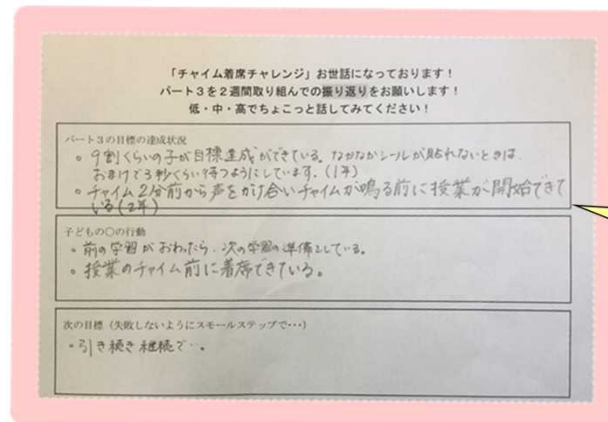 「チャイム着席チャレンジ」お世話になっております！
パート３を２週間取り組んでの振り返りをお願いします！
低・中・高でちょこっと話してみてください！
パート３の目標の達成状況
・9割くらいの子が目標達成ができている。なかなかシールが貼れないときは、
おまけで3秒くらい待つようにしています。(1年)
・チャイム2分前から声をかけ合いチャイムが鳴る前に授業が開始できて
いる(2年)
子どもの○の行動
・前の学習がおわったら、次の学習の準備をしている。
・授業のチャイム前に着席できている。
次の目標（失敗しないようにスモールステップで・・・）
・引き続き継続で・・。